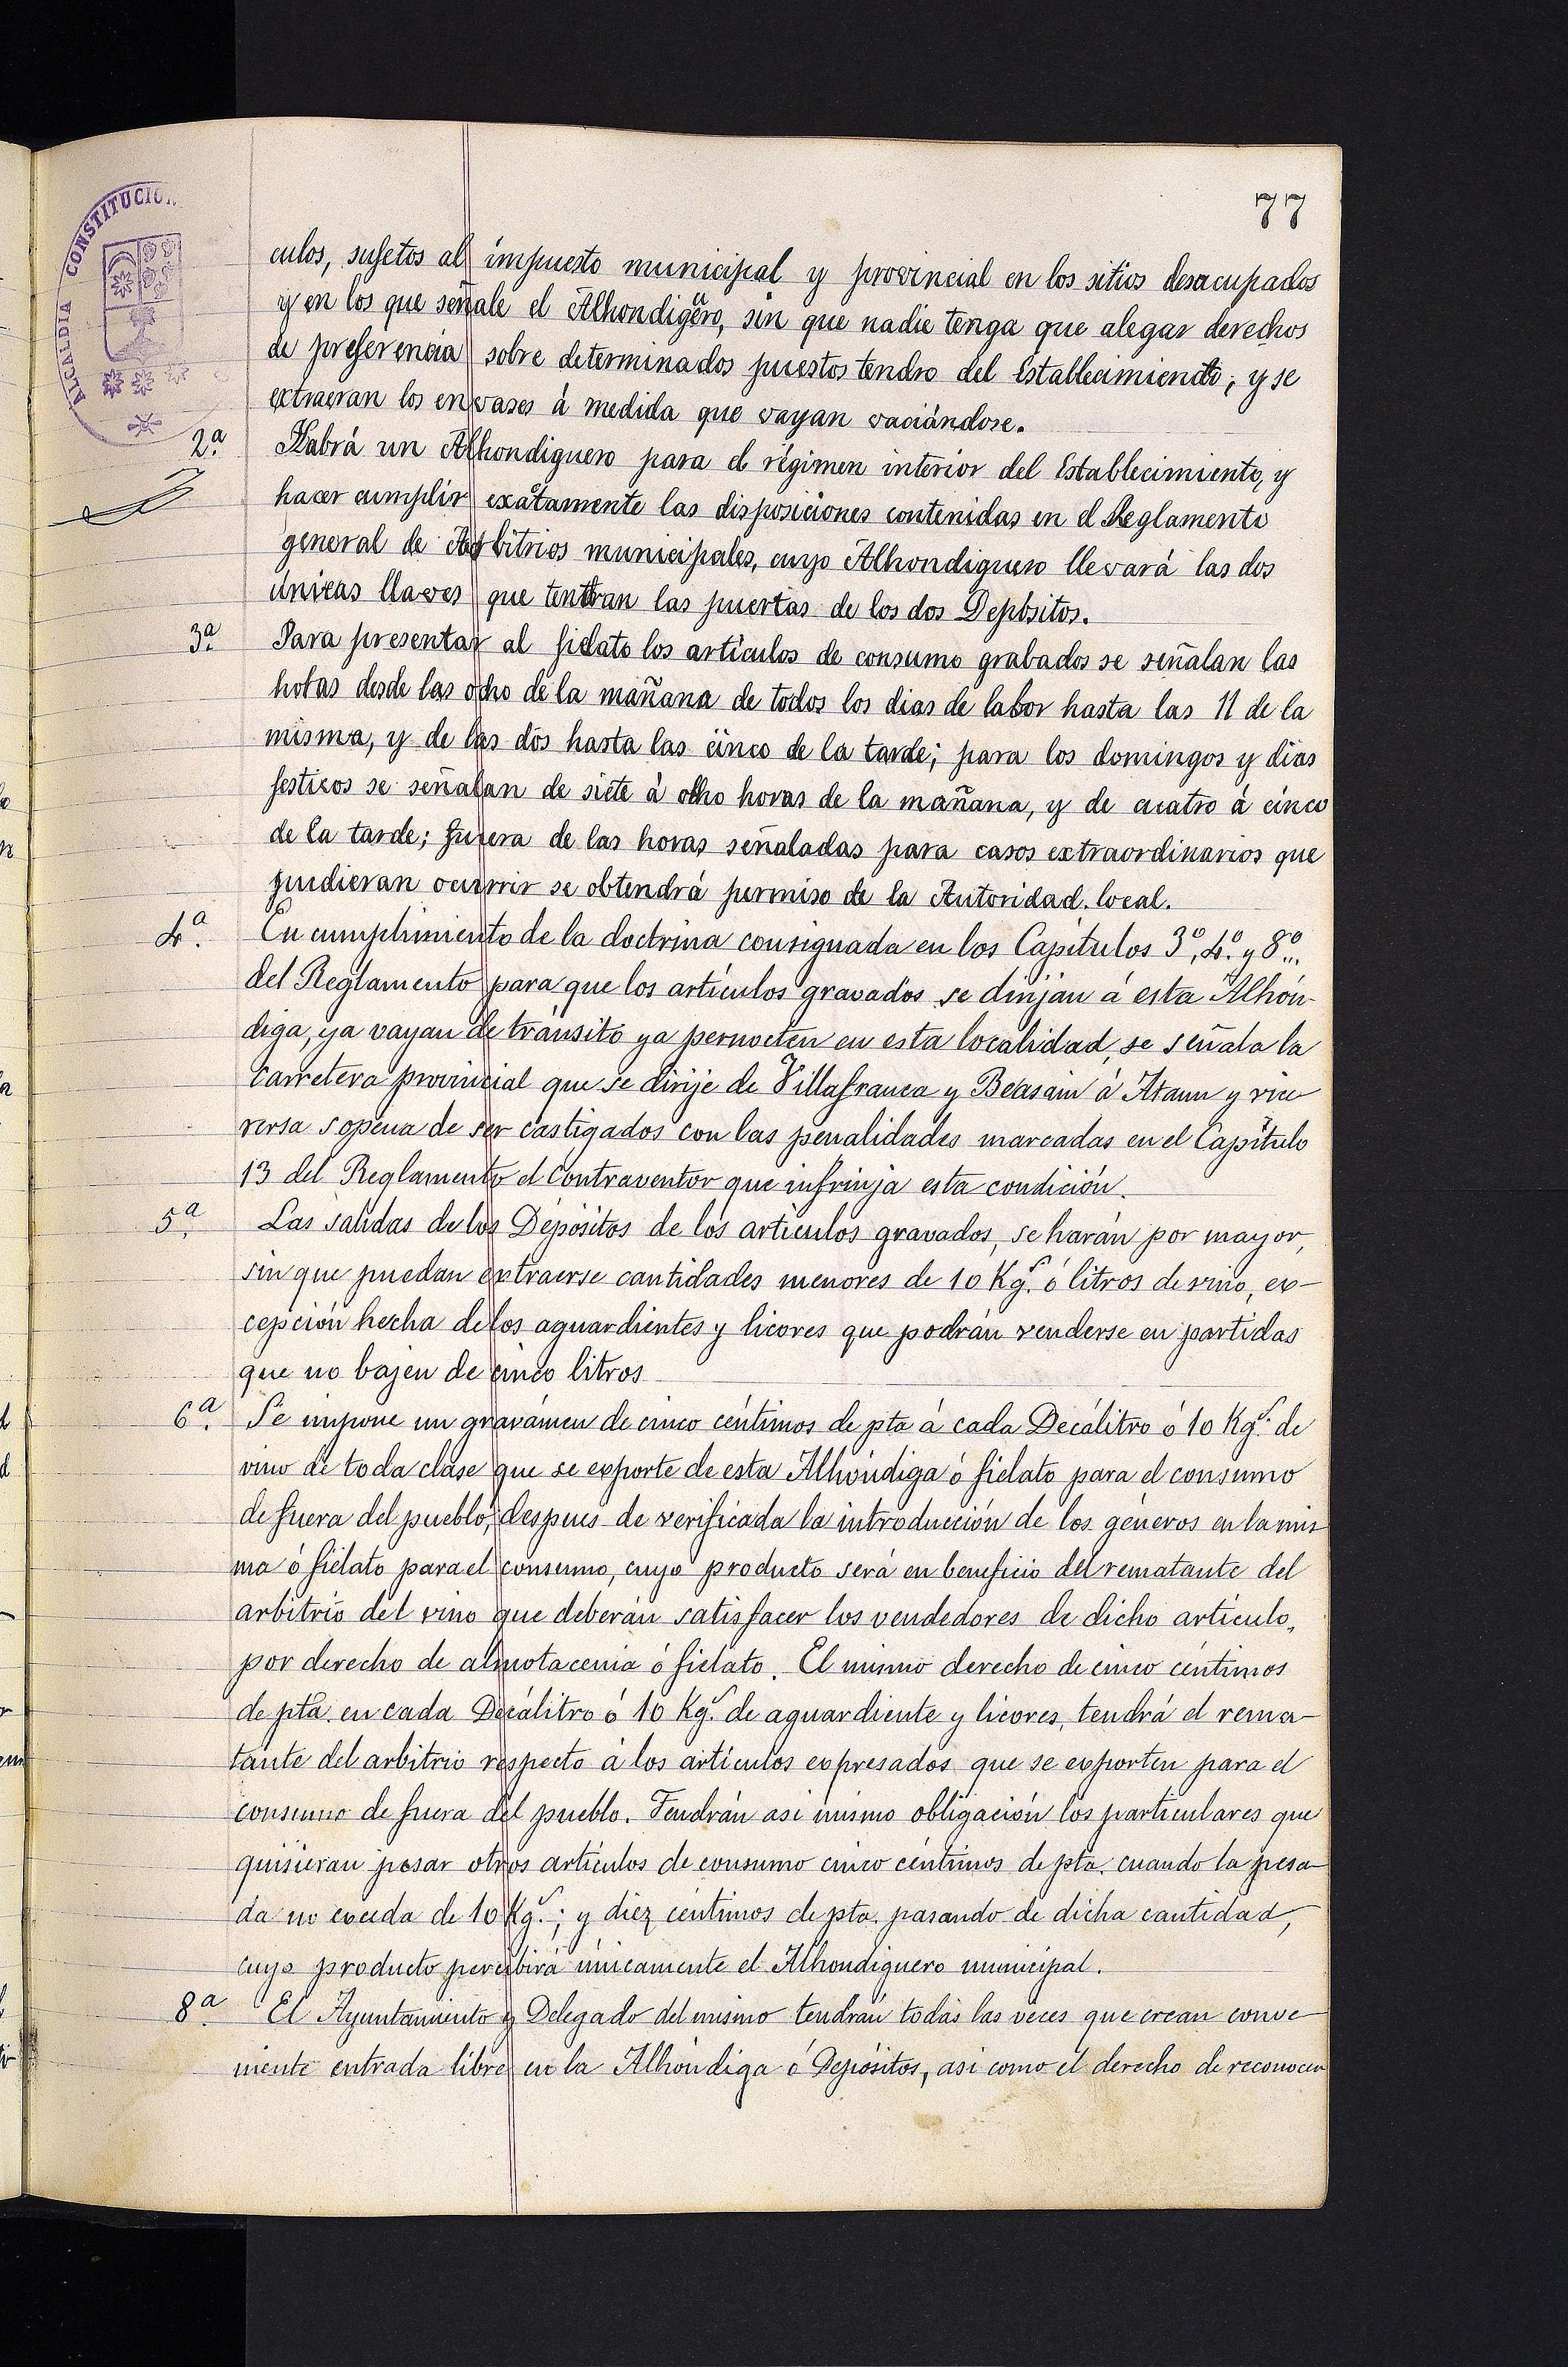 77
ALCALDIA CONSTITUCION
culos, sujetos al impuesto municipal y provincial en los sitios desacupados
y en los que señale el Alhondigero, sin que nadie tenga que alegar derechos
de preferencia sobre determinados puestos tendro del Establecimiento; y se
extraeran los envases á medida que vayan vaciándose.
2ª. Habrá un Alhondiguero para el régimen interior del Establecimiento, y
hacer cumplir exatamente las disposiciones contenidas en el Reglamento
general de Arbitrios municipales, cuyo Alhondiguero llevará las dos
únicas llaves que tentran las puertas de los dos Depósitos.
3ª. Para presentar al fielato los artículos de consumo grabados se señalan las
horas desde las ocho de la mañana de todos los dias de labor hasta las 11 de la
misma, y de las dos hasta las cinco de la tarde; para los domingos y dias
festivos se señalan de siete á ocho horas de la mañana, y de cuatro á cinco
de la tarde; fuera de las horas señaladas para casos extraordinarios que
pudieran ocurrir se obtendrá permiso de la Autoridad local.
4ª. En cumplimiento de la doctrina consignada en los Capítulos 3º, 4º. y 8º...
del Reglamento para que los artículos gravados se dirijan á esta Alhón-
diga, ya vayan de tránsito ya pernocten en esta localidad, se señala la
Carretera provincial que se dirije de Villafranca y Beasain á Ataun y vice
versa sopena de ser castigados con las penalidades marcadas en el Capítulo
13 del Reglamento el Contraventor que infrinja esta condición.
5ª. Las salidas de los Depósitos de los artículos gravados, se harán por mayor,
sin que puedan extraerse cantidades menores de 10 Kgs. ó litros de vino, ex-
cepción hecha de los aguardientes y licores que podrán venderse en partidas
que no bajen de cinco litros
6ª. Se impone un gravámen de cinco céntimos de pta á cada Decálitro ó 10 Kgs. de
vino de toda clase que se exporte de esta Alhóndiga ó fielato para el consumo
de fuera del pueblo, despues de verificada la introducción de los géneros en la mis
ma ó fielato para el consumo, cuyo producto será en beneficio del rematante del
arbitrio del vino que deberán satisfacer los vendedores de dicho artículo,
por derecho de almotacenia ó fielato. El mismo derecho de cinco céntimos
de pta. en cada Decálitro ó 10 Kgs. de aguardiente y licores, tendrá el rema-
tante del arbitrio respecto á los artículos expresados que se exporten para el
consumo de fuera del pueblo. Tendrán asi mismo obligación los particulares que
quisieran pesar otros artículos de consumo cinco céntimos de pta. cuando la pesa-
da no exceda de 10 Kgs.; y diez céntimos de pta. pasando de dicha cantidad,
cuyo producto percibirá únicamente el Alhondiguero municipal.
8ª. El Ayuntamiento y Delegado del mismo tendrán todas las veces que crean conve
niente entrada libre en la Alhóndiga ó Depósitos, asi como el derecho de reconocer